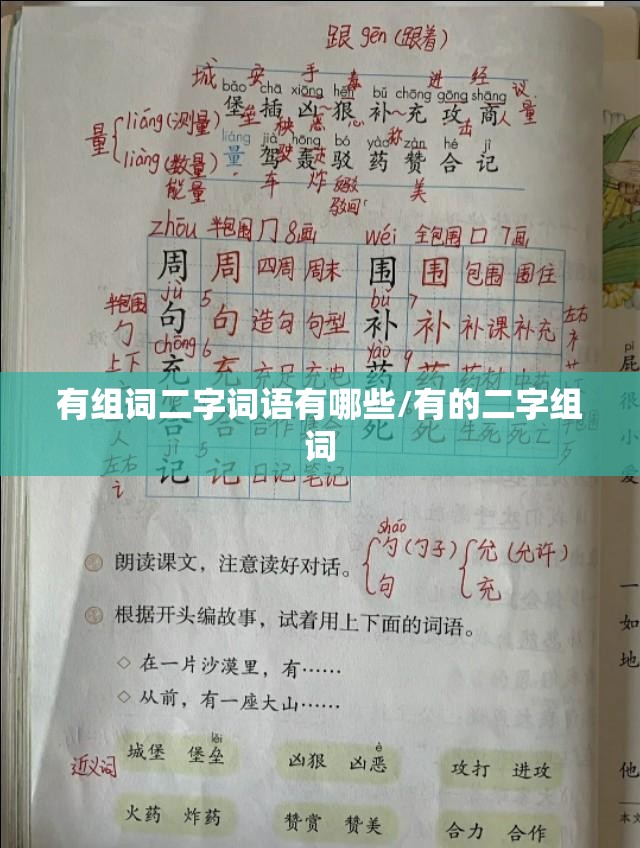 跟 gēn (跟着)
城 安 手 毒 进 经 议
bǎo chā xiōng hěn bǔ chōng gōng shāng
堡 插 凶~ 狠 补~充 攻 商人 量
liáng(测量) 垒 秧 恶 忍 称 击
量
liáng jià hōng bó yào zàn hé jì
liàng(数量) 量 驾驶 轰走 驳 药 赞 合 记
能量 车 炸 反驳 美
驳回
zhōu 半包围 冂 8画 wéi 全包围 口 7画
周 周 四周 周末 围 围 包围 围住
jù 5 bǔ 7
半包围 句 句 造句 句型 补 补 补课 补充 左右
勹 衤
chōng 6 yào 9
上下 充 充 充足 充电 药 药 药材 中药 艹
有组词二字词语有哪些/有的二字组
词
人 合 合 合作 死 死 生死 死亡 歹
jì 5
左右 记 记 日记 笔记
讠
朗读课文，注意读好对话。
sháo
勺(勺子) 允(允许)
句 充
根据开头编故事，试着用上下面的词语。
◇ 在一片沙漠里，有……
◇ 从前，有一座大山……
lěi è
近义词 城堡 堡垒 凶狠 凶恶 攻打 进攻
火药 炸药 赞赏 赞美 合力 合作
pì
屁
很
小
爱
一
如
地
他
本文